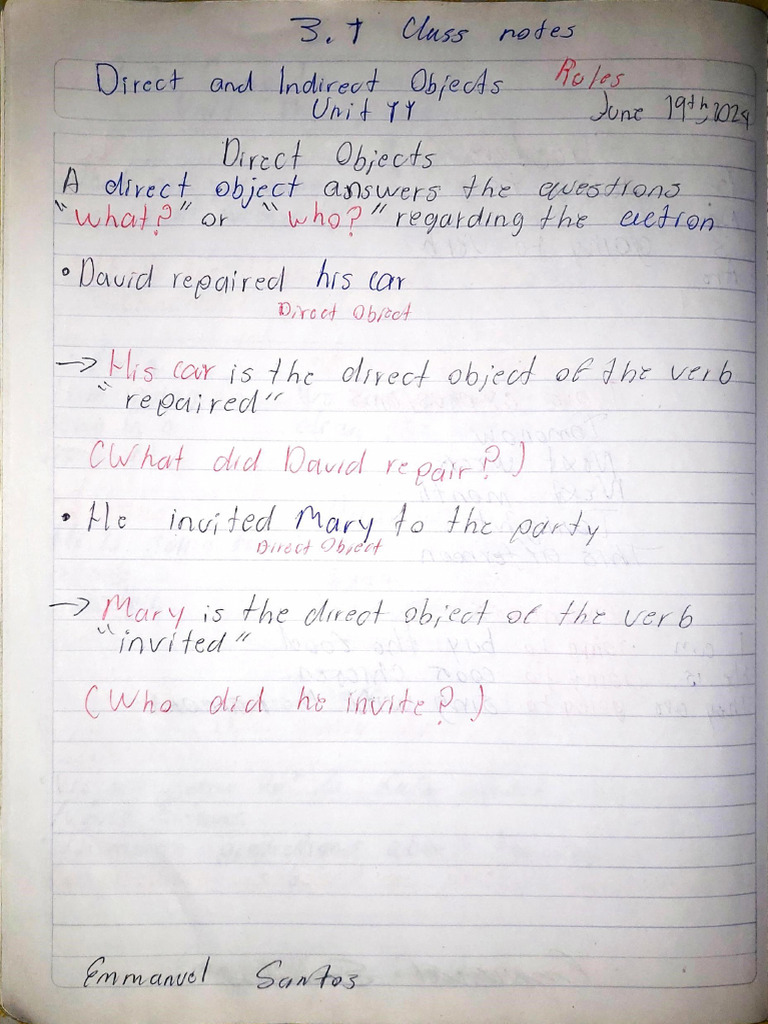 3.1 Class notes
Direct and Indirect Objects Rules
Unit 11 June 19th, 2024
Direct Objects
A direct object answers the questions
"What?" or "who?" regarding the action
• David repaired his car
Direct Object
→ His car is the direct object of the verb
"repaired"
(What did David repair?)
• He invited Mary to the party
Direct Object
→ Mary is the direct object of the verb
"invited"
(Who did he invite?)
Emmanuel Santos